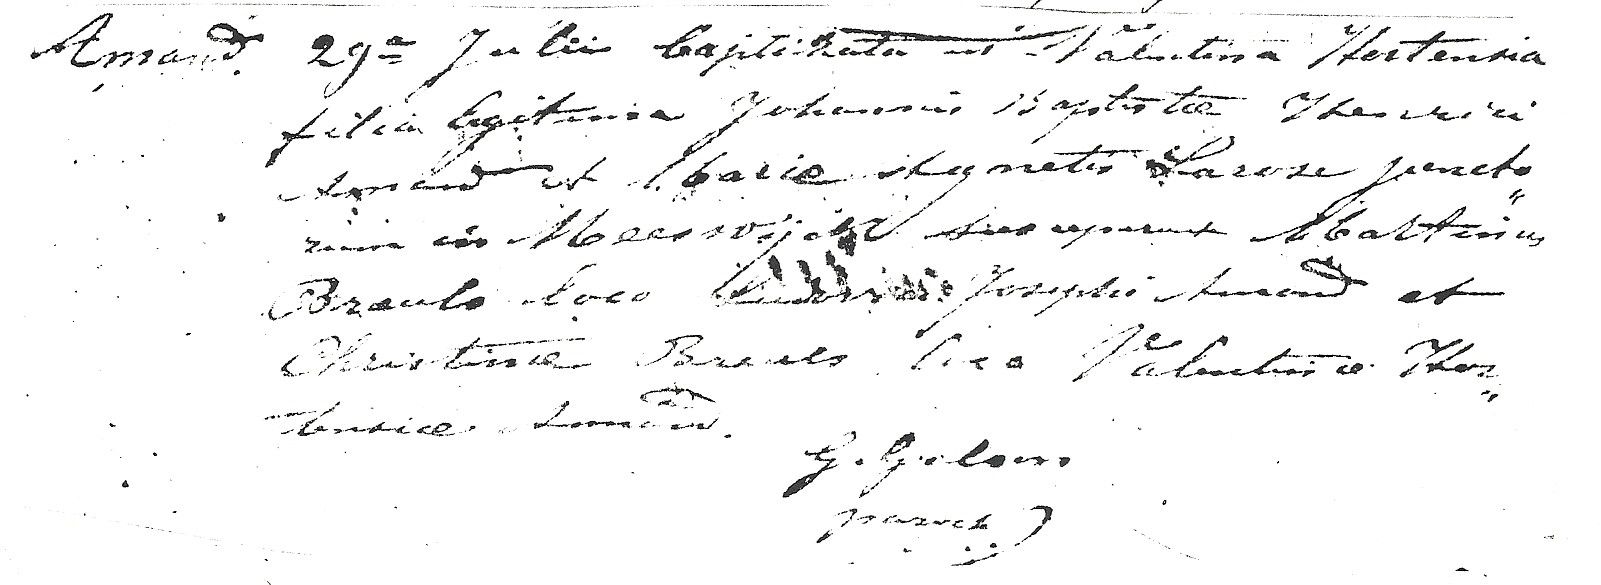 Amand. 29a Julii baptizata est Valentina Hortensia
filia legitima Johannis Baptistæ Henrici
Amand et Mariæ Agnetis Larose juncto„
rum in Meerswijck susceperunt Martinus
Brouls loco Josephi Amand et
Christinæ Brouls loco Valentinæ Hor„
tensiæ Amand.
G. Gelown
paroch